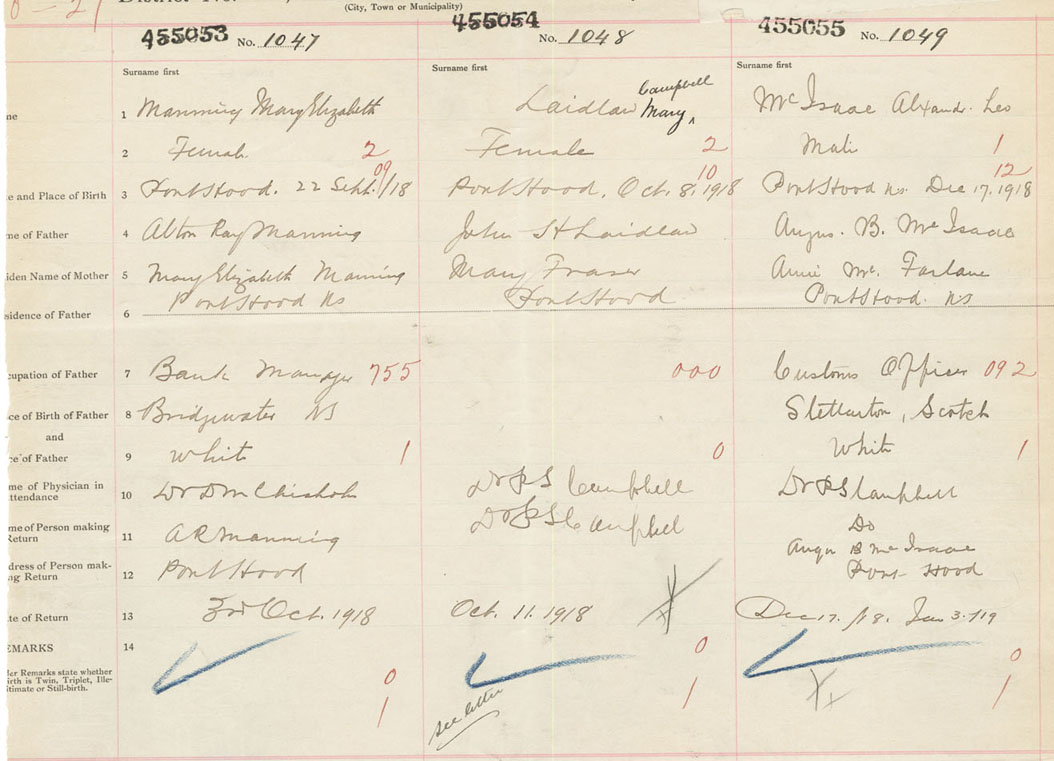 (City, Town or Municipality)
455053 No. 1047
455054 No. 1048
455055 No. 1049
Surname first
Surname first
Surname first
me 1 Manning Mary Elizabeth
Laidlaw Mary Campbell
McIsaac Alxandr. Leo
2 Femal. 2
Female 2
Male 1
te and Place of Birth 3 Port Hood. 22 Sept./18 09
Port Hood, Oct. 8. 1918 10
Port Hood NS. Dec 17. 1918 12
me of Father 4 Alton Ray Manning
John H Laidlaw
Angus. B. McIsaac
iden Name of Mother 5 Mary Elizabeth Manning
Mary Fraser
Annie Mc. Farlane
sidence of Father 6 Port Hood NS
Port Hood
Port Hood. NS
cupation of Father 7 Bank Manager 755
000
Customs Officer 092
ce of Birth of Father 8 Bridgewater NS
Stellarton, Scotch
and
ce of Father 9 White 1
0
White 1
me of Physician in
ttendance 10 Dr D M Chisholm
Dr P S Campbell
Dr P S Campbell
me of Person making
Return 11 A R Manning
Dr P S Campbell
Do
Angus B McIsaac
dress of Person mak-
ng Return 12 Port Hood
Port Hood
te of Return 13 3rd Oct. 1918
Oct. 11. 1918
Dec 17. /18. Jan 3. /19
EMARKS 14
der Remarks state whether
irth is Twin, Triplet, Ille-
itimate or Still-birth.
0
1
0
1
see letter
0
1